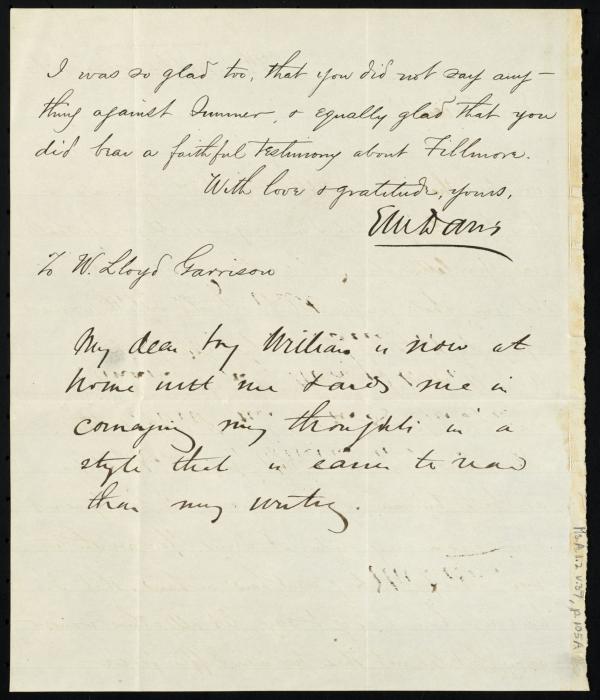 I was so glad too, that you did not say any-
thing against Sumner, & equally glad that you
did bear a faithful testimony about Fillmore.
With love & gratitude, yours,
EM Davis
To W. Lloyd Garrison
My dear boy William is now at
home with me & aids me in
conveying my thoughts in a
style that is easier to read
than my writing.
Ms.A.1.2 v.37, p.105A